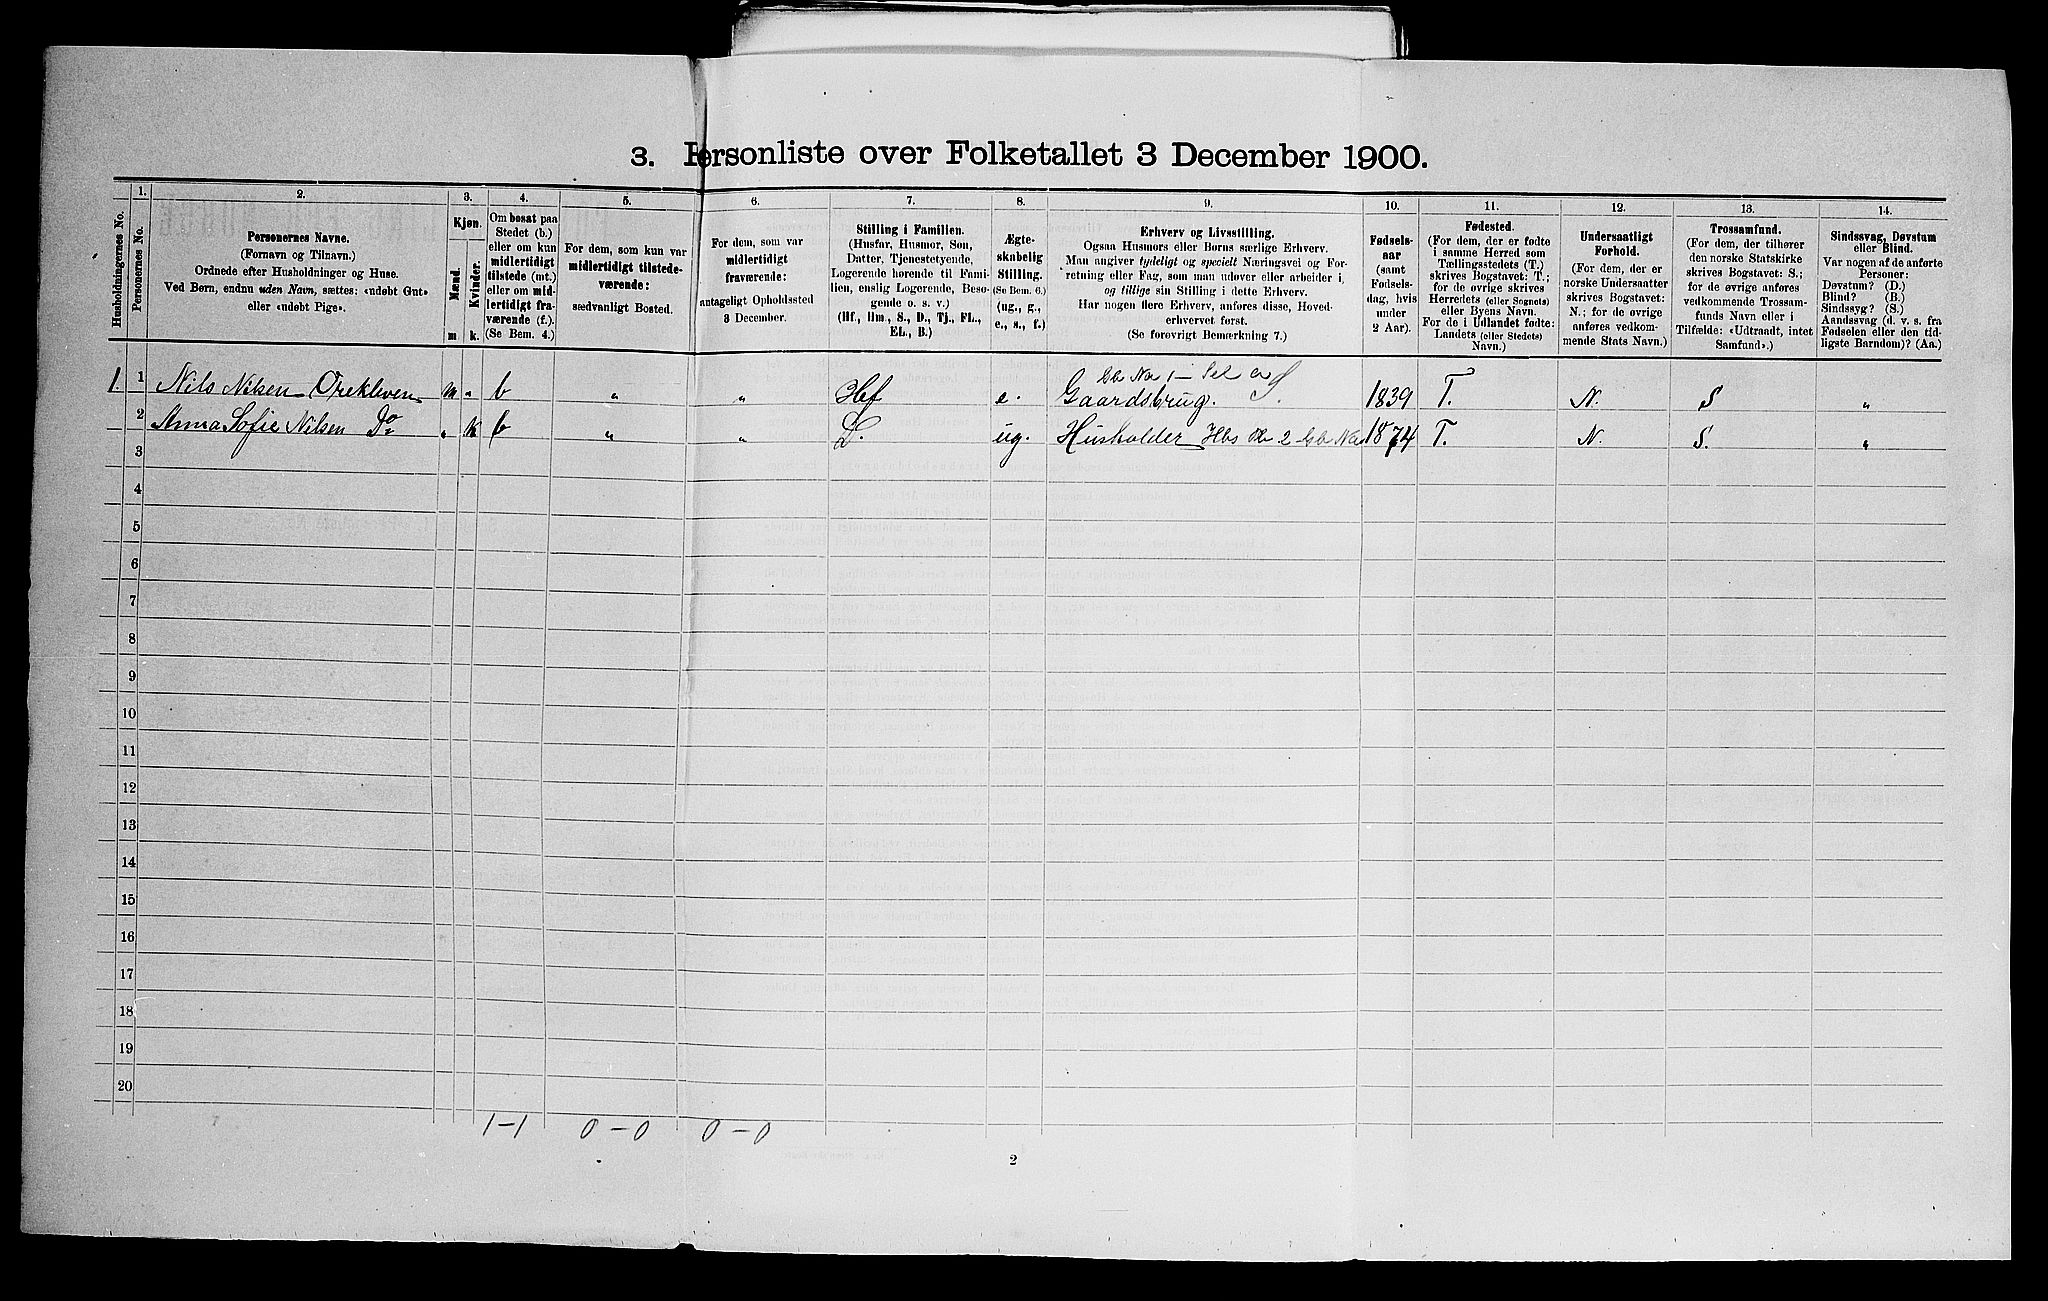 3. Personliste over Folketallet 3 December 1900.
Husholdningernes No.
1.
Personernes No.
2.
Personernes Navne.
(Fornavn og Tilnavn.)
Ordnede efter Husholdninger og Huse.
Ved Børn, endnu uden Navn, sættes: «udøbt Gut»
eller «udøbt Pige».
3.
Kjøn.
Mænd.
Kvinder.
m.
k.
4.
Om bosat paa
Stedet (b.)
eller om kun
midlertidigt
tilstede (mt.)
eller om mid-
lertidigt fra-
værende (f.).
(Se Bem. 4.)
5.
For dem, som kun var
midlertidigt tilstede-
værende:
sædvanligt Bosted.
6.
For dem, som var
midlertidigt
fraværende:
antageligt Opholdssted
3 December.
7.
Stilling i Familien.
(Husfar, Husmor, Søn,
Datter, Tjenestetyende,
Logerende hørende til Fami-
lien, enslig Logerende, Besø-
gende o. s. v.)
(Hf., Hm., S., D., Tj., FL.,
EL., B.)
8.
Ægte-
skabelig
Stilling.
(Se Bem. 6.)
(ug., g.,
e., s., f.)
9.
Erhverv og Livsstilling.
Ogsaa Husmors eller Børns særlige Erhverv.
Man angiver tydeligt og specielt Næringsvei og For-
retning eller Fag, som man udøver eller arbeider i,
og tillige sin Stilling i dette Erhverv.
Har nogen flere Erhverv, anføres disse, Hoved-
erhvervet først.
(Se forøvrigt Bemærkning 7.)
10.
Fødsels-
aar
(samt
Fødsels-
dag, hvis
under
2 Aar).
11.
Fødested.
(For dem, der er fødte
i samme Herred som
Tællingsstedets (T.)
skrives Bogstavet: T.;
for de øvrige skrives
Herredets (eller Sognets)
eller Byens Navn.
For de i Udlandet fødte:
Landets (eller Stedets)
Navn.)
12.
Undersaatligt
Forhold.
(For dem, der er
norske Undersaatter
skrives Bogstavet:
N.; for de øvrige
anføres vedkom-
mende Stats Navn.)
13.
Trossamfund.
(For dem, der tilhører
den norske Statskirke
skrives Bogstavet: S.;
for de øvrige anføres
vedkommende Trossam-
funds Navn eller i
Tilfælde: «Udtraadt, intet
Samfund».)
14.
Sindssvag, Døvstum
eller Blind.
Var nogen af de anførte
Personer:
Døvstum? (D.)
Blind? (B.)
Sindssyg? (S.)
Aandssvag (d. v. s. fra
Fødselen eller den tid-
ligste Barndom)? (Aa.)
1. 1 Nils Nilsen Orekleven m " b " " Hf e. Gaardsbrug. S. 1839 T. N. S "
2 Anna Sofie Nilsen Do " k b " " D. ug. Husholder 1874 T. N. S. "
3
4
5
6
7
8
9
10
11
12
13
14
15
16
17
18
19
20
1-1 0-0 0-0
2